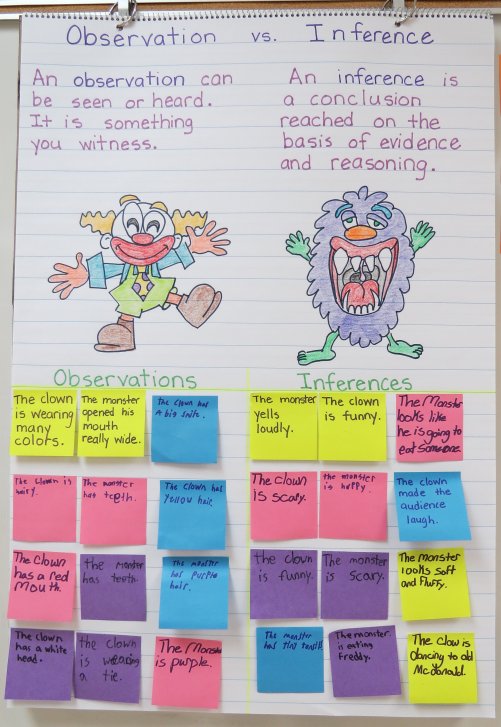 Observation vs. Inference
An observation can
be seen or heard.
It is something
you witness.
An inference is
a conclusion
reached on the
basis of evidence
and reasoning.
Observations
The clown
is wearing
many
colors.
The monster
opened his
mouth
really wide.
The clown has
a big smile.
The clown is
The monster
has teeth.
The clown has
yellow hair.
The clown
has a red
mouth.
the monster
has teeth.
The monster
has purple
hair.
The clown
has a white
head.
the clown
is wearing
a tie.
The Monster
is purple.
Inferences
The monster
yells
loudly.
The clown
is funny.
The Monster
looks like
he is going to
eat someone.
The clown
is scary.
the monster
is happy.
The clown
made the
audience
laugh.
the clown
is funny.
The monster
is scary.
The monster
looks soft
and fluffy.
The monster
has tiny
The monster
is eating
Freddy.
The Clow is
dancing to old
McDonald.